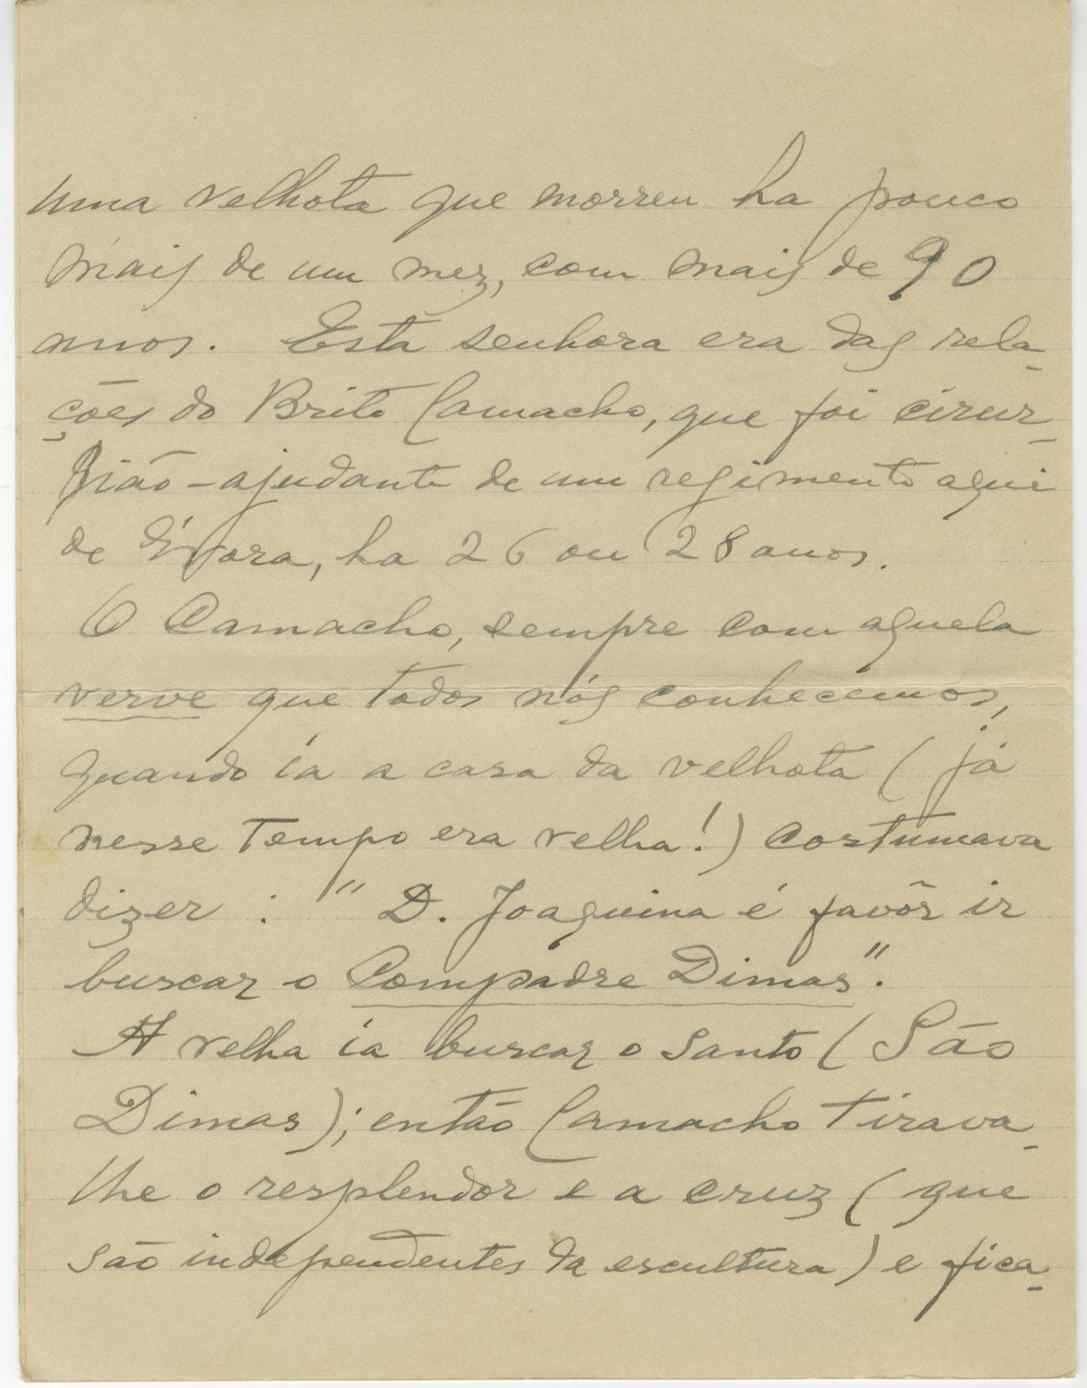 uma velhota que morreu ha pouco
mais de um mez, com mais de 90
anos. Esta senhora era das rela-
ções do Brito Camacho, que foi cirur-
gião-ajudante de um regimento aqui
de Évora, ha 26 ou 28 anos.
O Camacho, sempre com aquela
verve que todos nós conhecemos,
quando ía a casa da velhota (já
nesse tempo era velha!) costumava
dizer : " D. Joaquina é favôr ir
buscar o Compadre Dimas".
A velha ía buscar o santo (São
Dimas); então Camacho tirava-
lhe o resplendor e a cruz (que
são independentes da escultura) e fica-